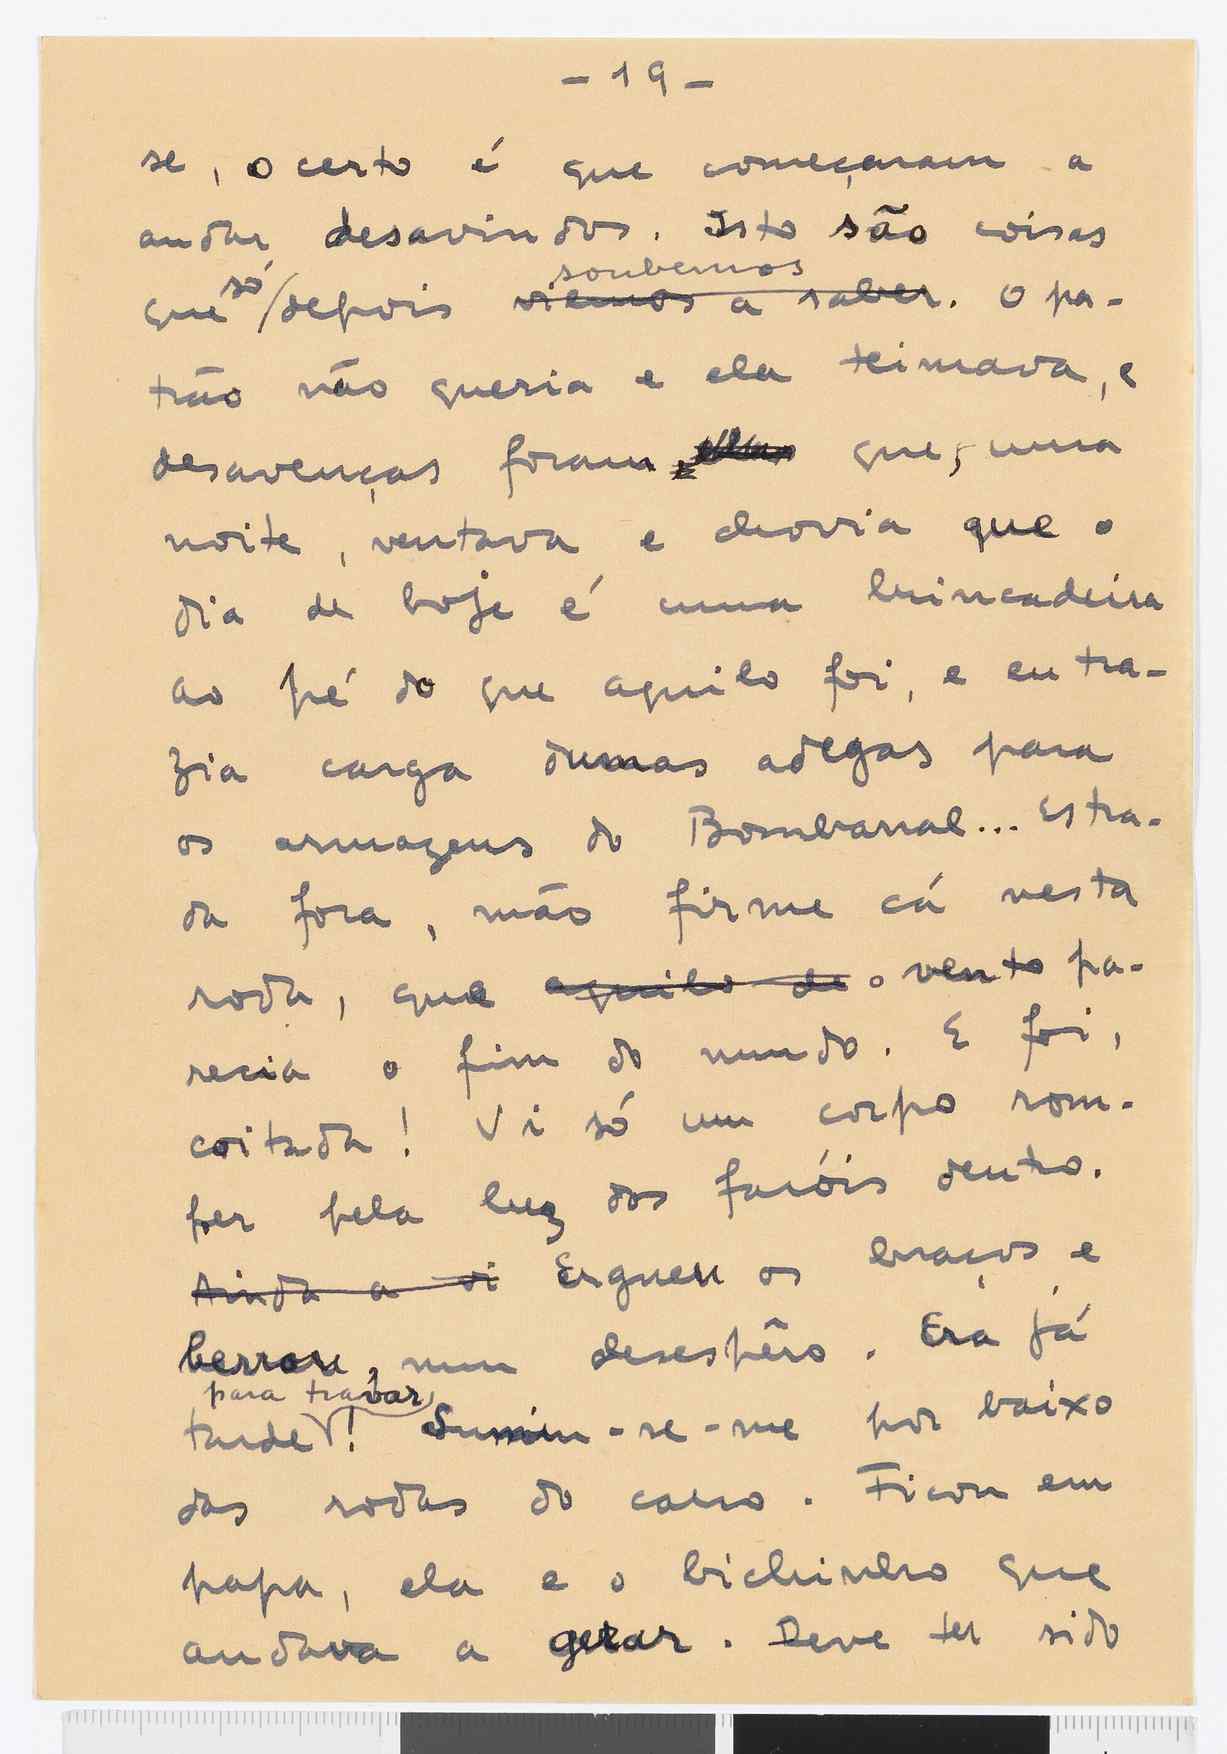 - 19 -
se, o certo é que começaram a
andar desavindos. Isto são coisas
só soubemos
que depois viemos a saber. O pa-
trão não queria e ela teimava, e
desavenças foram que, uma
noite, ventava e chovia que o
dia de hoje é uma brincadeira
ao pé do que aquilo foi, e eu tra-
zia carga dumas adegas para
os armazens do Bombarral... Estra-
da fora, mão firme cá nesta
roda, que aquilo de o vento pa-
recia o fim do mundo. E foi,
coitada! Vi só um corpo rom-
per pela luz dos faróis dentro.
Ainda a vi Ergueu os braços e
berrou, num desespêro. Era já
para travar
tarde! Sumiu-se-me por baixo
das rodas do carro. Ficou em
papa, ela e o bichinho que
andava a gerar. Deve ter sido